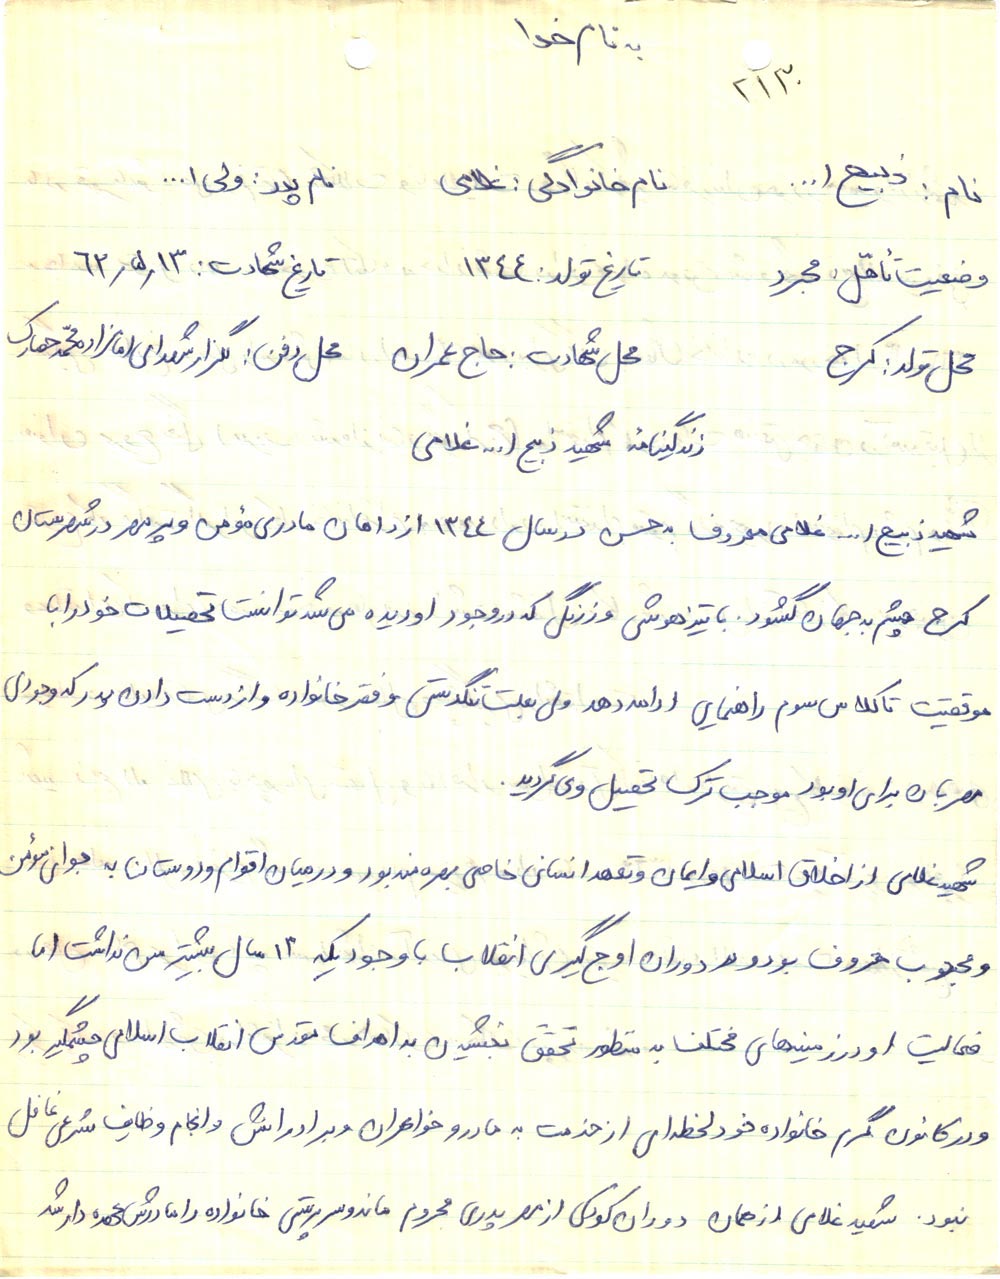 به نام خدا
۲۱۳۰
نام: ذبیح ا... نام خانوادگی: غلامی نام پدر: ولی ا...
وضعیت تأهّل: مجرد تاریخ تولد: ۱۳٤٤ تاریخ شهادت: ۶۲/۵/۱۳
محل تولد: کرج محل شهادت: حاج عمران محل دفن: گلزار شهدای امامزاده محمّد حصارک
زندگینامهٔ شهید ذبیح ا... غلامی
شهید ذبیح ا... غلامی معروف به حسن در سال ۱۳٤٤ از دامان مادری مؤمن و پر مهر در شهرستان
کرج چشم به جهان گشود. با تیزهوشی و زرنگی که در وجود او دیده می شد توانست تحصیلات خود را با
موفقیت تا کلاس سوم راهنمایی ادامه دهد ولی بعلت تنگدستی و فقر خانواده و از دست دادن پدر که وجودی
مهربان برای او بود موجب ترک تحصیل وی گردید.
شهید غلامی از اخلاق اسلامی و ایمان و تعهد انسانی خاصی بهره مند بود و در میان اقوام و دوستان به جوانی مؤمن
و محبوب معروف بود و در دوران اوج گیری انقلاب با وجودیکه ۱۳ سال بیشتر سن نداشت اما
فعالیت او در زمینه‌های مختلف به منظور تحقق بخشیدن به اهداف مقدس انقلاب اسلامی چشمگیر بود
و در کانون گرم خانواده خود لحظه‌ای از خدمت به مادر و خواهران و برادرانش و انجام وظایف شرعی غافل
نبود. شهید غلامی از همان دوران کودکی از مهر پدری محروم ماند و سرپرستی خانواده را مادرش عهده دار شد